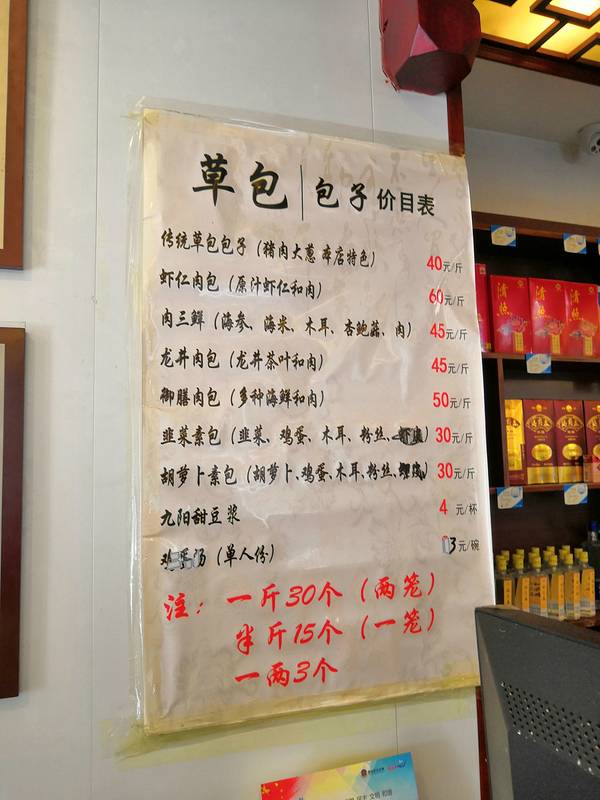 草包 包子价目表
传统草包包子（猪肉大葱 本店特色） 40元/斤
虾仁肉包（原汁虾仁和肉） 60元/斤
肉三鲜（海参、海米、木耳、杏鲍菇、肉） 45元/斤
龙井肉包（龙井茶叶和肉） 45元/斤
御膳肉包（多种海鲜和肉） 50元/斤
韭菜素包（韭菜、鸡蛋、木耳、粉丝、） 30元/斤
胡萝卜素包（胡萝卜、鸡蛋、木耳、粉丝、） 30元/斤
九阳甜豆浆 4 元/杯
汤（单人份） 3元/碗
注：一斤30个（两笼）
半斤15个（一笼）
一两3个